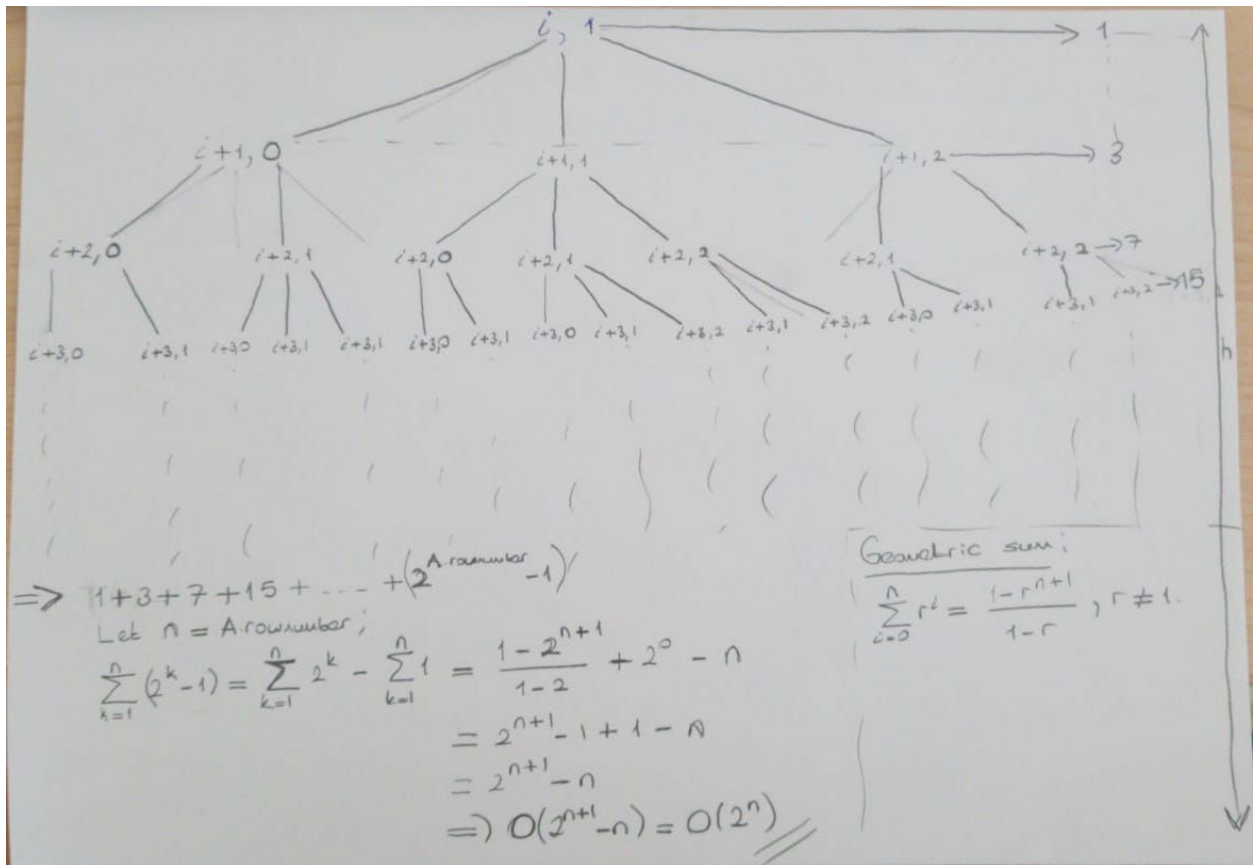 i, 1 → 1
i+1, 0 i+1, 1 i+1, 2 → 3
i+2, 0 i+2, 1 i+2, 0 i+2, 1 i+2, 2 i+2, 1 i+2, 2 → 7
i+3,0 i+3,1 i+3,0 i+3,1 i+3,1 i+3,0 i+3,1 i+3,0 i+3,1 i+3,2 i+3,1 i+3,2 i+3,0 i+3,1 i+3,1 i+3,2 → 15
h
=> 1+3+7+15+ .... + (2^{A.rownumber} - 1)
Let n = A.rownumber;
\sum_{k=1}^{n} (2^k-1) = \sum_{k=1}^{n} 2^k - \sum_{k=1}^{n} 1 = \frac{1-2^{n+1}}{1-2} + 2^0 - n
= 2^{n+1} - 1 + 1 - n
= 2^{n+1} - n
=) O(2^{n+1} - n) = O(2^n)
Geometric sum;
\sum_{i=0}^{n} r^i = \frac{1-r^{n+1}}{1-r}, r ≠ 1.